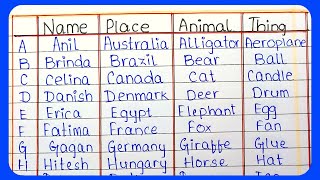 Name Place Animal Thing
A Anil Australia Alligator Aeroplane
B Brinda Brazil Bear Ball
C Celina Canada Cat Candle
D Danish Denmark Deer Drum
E Erica Egypt Elephant Egg
F Fatima France Fox Fan
G Gagan Germany Giraffe Glue
H Hitesh Hungary Horse Hat